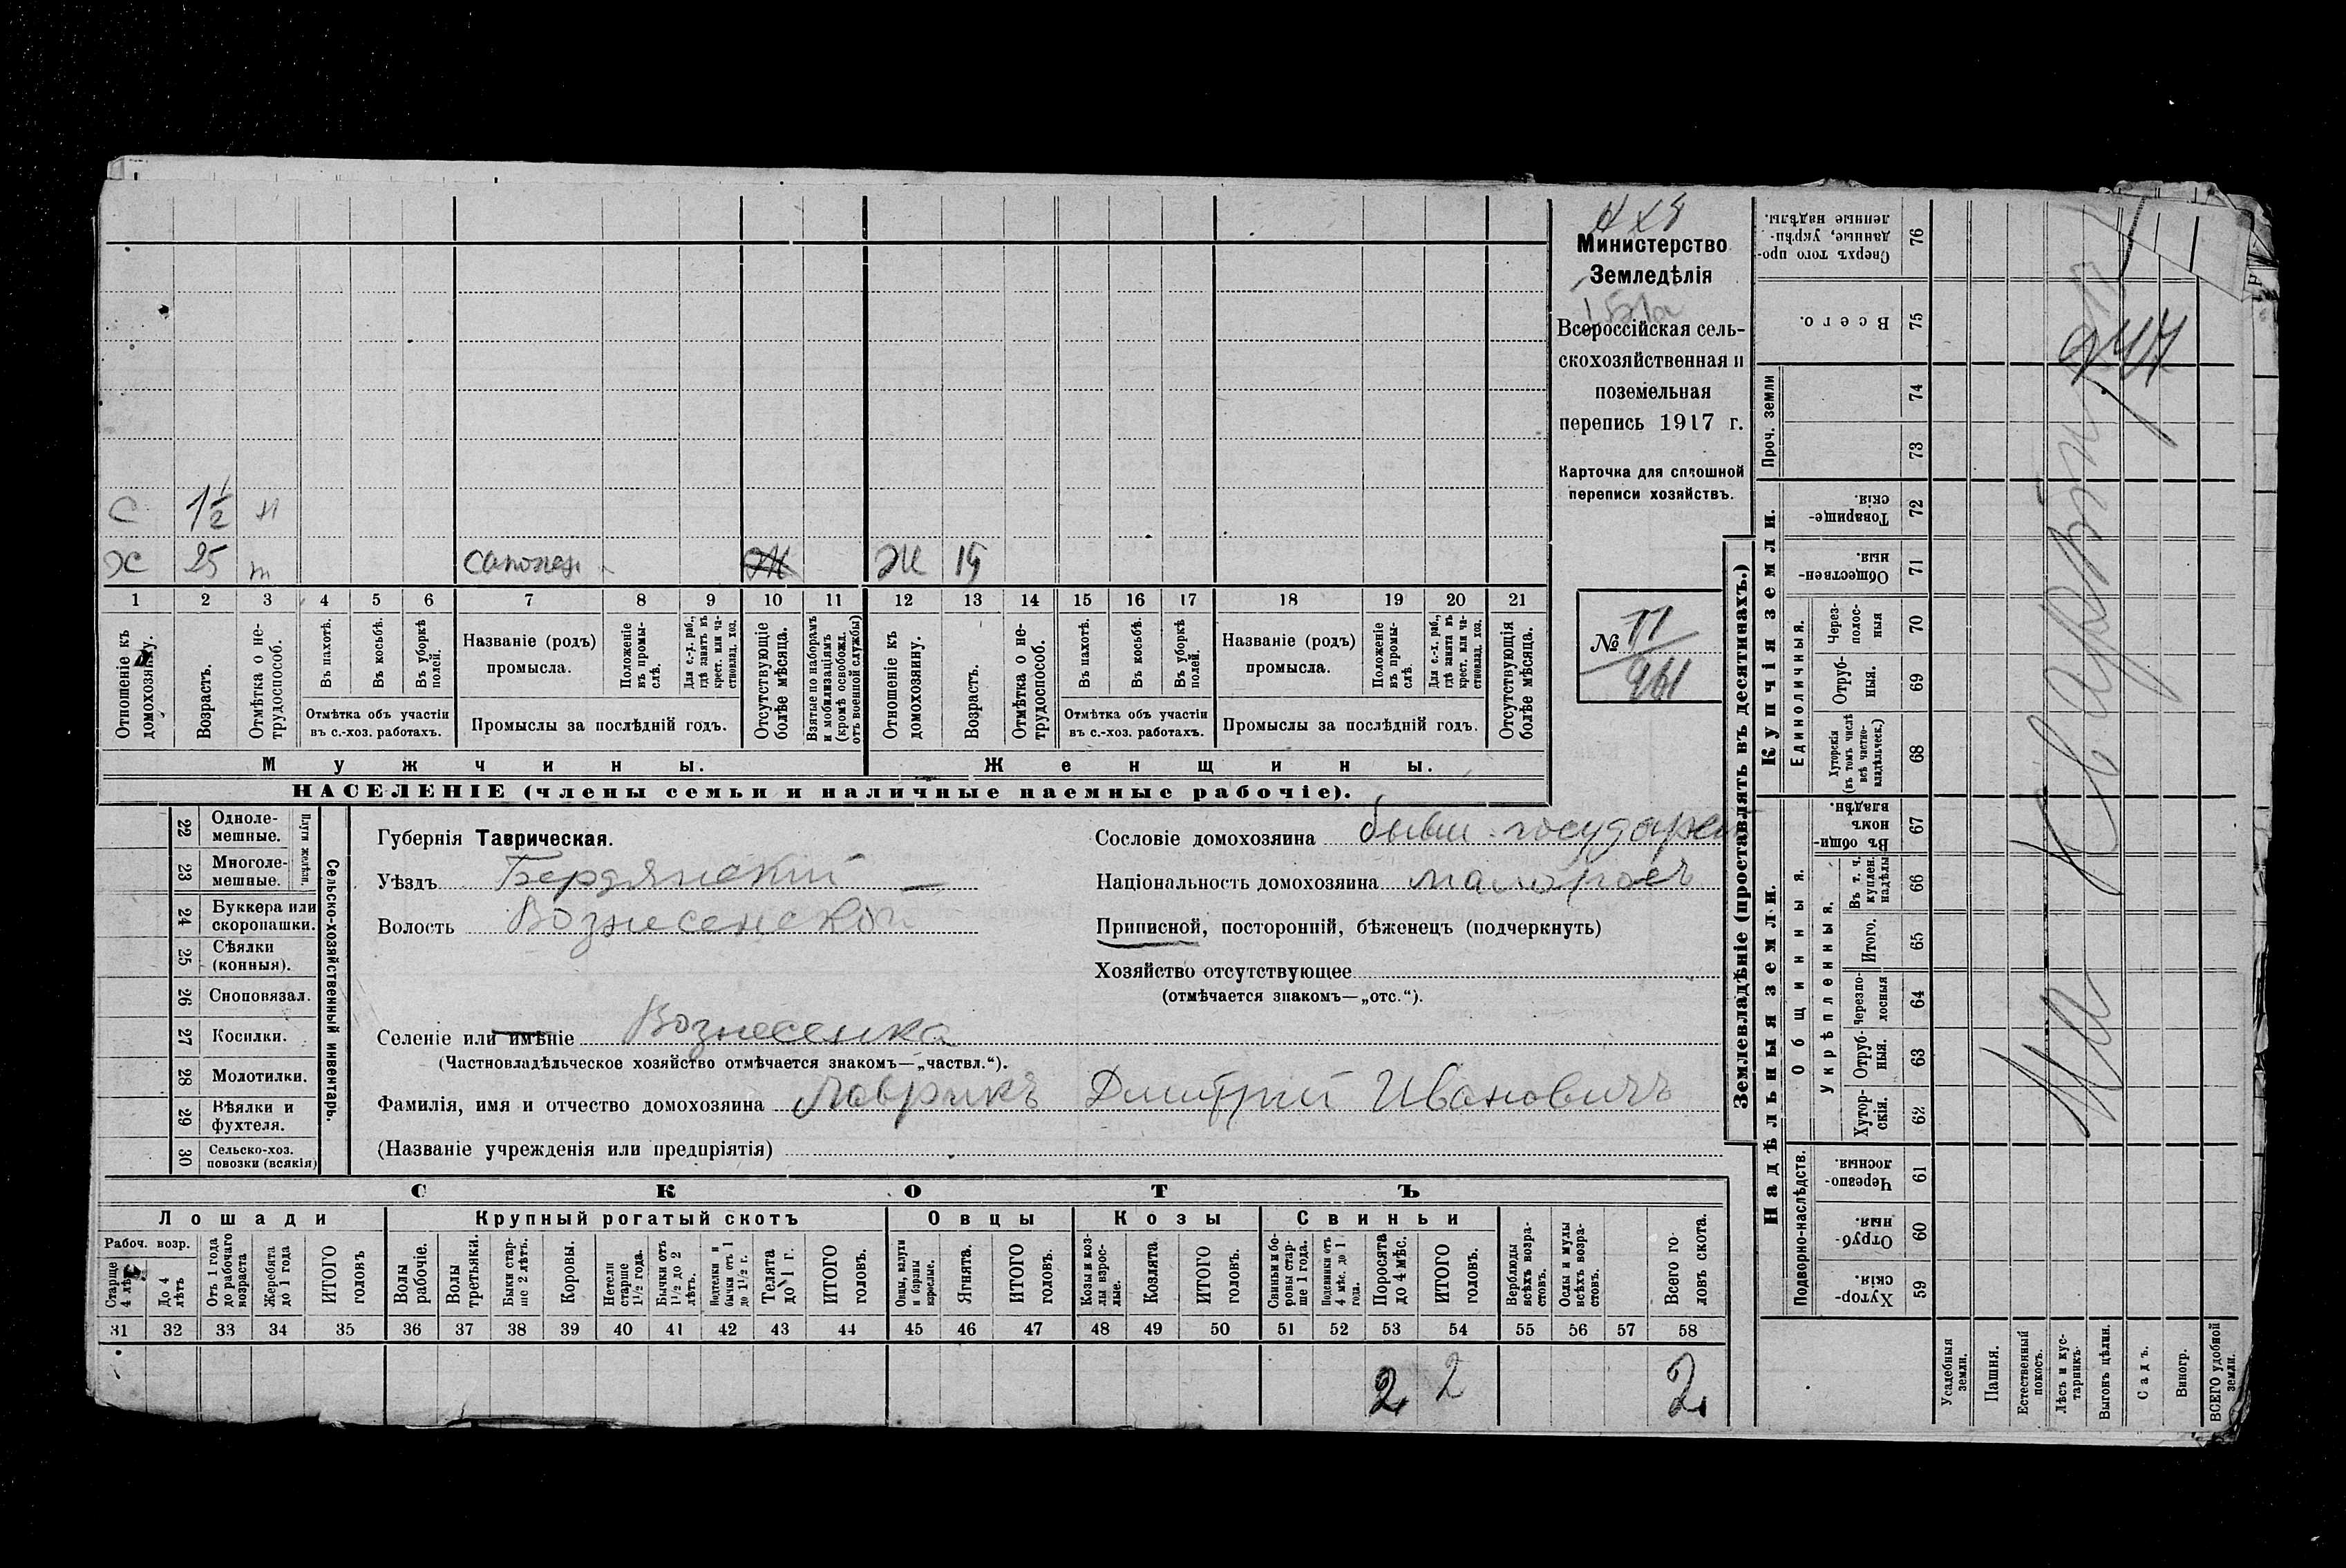 Министерство
Земледѣлія
Всероссійская сель-
скохозяйственная и
поземельная
перепись 1917 г.
Карточка для сплошной
переписи хозяйствъ.
№ 77
961
С 1½ н
Х 25 т сапожн Ж Ж 19
1 2 3 4 5 6 7 8 9 10 11 12 13 14 15 16 17 18 19 20 21
Отношеніе къ домохозяину.
Возрастъ.
Отмѣтка о не-трудоспособ.
Въ пахотѣ.
Въ косьбѣ.
Въ уборкѣ полей.
Отмѣтка объ участіи
въ с.-хоз. работахъ.
Названіе (родъ)
промысла.
Положеніе въ промы-слѣ.
Для с.-х. раб., гдѣ занятъ въ крест. или ча-стновлад. хоз.
Промыслы за послѣдній годъ.
Отсутствующіе болѣе мѣсяца.
Взятые по наборамъ и мобилизаціямъ (кромѣ освобожд. отъ военной службы)
Отношеніе къ домохозяину.
Возрастъ.
Отмѣтка о не-трудоспособ.
Въ пахотѣ.
Въ косьбѣ.
Въ уборкѣ полей.
Отмѣтка объ участіи
въ с.-хоз. работахъ.
Названіе (родъ)
промысла.
Положеніе въ промы-слѣ.
Для с.-х. раб., гдѣ занята въ крест. или ча-стновлад. хоз.
Промыслы за послѣдній годъ.
Отсутствующія болѣе мѣсяца.
Мужчины.
Женщины.
НАСЕЛЕНІЕ (члены семьи и наличные наемные рабочіе).
22 Однолемешные.
23 Многолемешные.
Плуги желѣзн.
24 Буккера или скоропашки.
25 Сѣялки (конныя).
26 Сноповязал.
27 Косилки.
28 Молотилки.
29 Вѣялки и фухтеля.
30 Сельско-хоз. повозки (всякія)
Сельско-хозяйственный инвентарь.
Губернія Таврическая.
Уѣздъ Бердянскій
Волость Вознесенской
Селеніе или имѣніе Вознесенка
(Частновладѣльческое хозяйство отмѣчается знакомъ—„частвл.“).
Фамилія, имя и отчество домохозяина Лаврикъ Дмитрій Ивановичъ
(Названіе учрежденія или предпріятія)
Сословіе домохозяина бывш. государст
Національность домохозяина малоросъ
Приписной, посторонній, бѣженецъ (подчеркнуть)
Хозяйство отсутствующее
(отмѣчается знакомъ—„отс.“).
СКОТЪ
Лошади
Крупный рогатый скотъ
Овцы
Козы
Свиньи
Рабоч. возр.
Старше 4 лѣтъ
До 4 лѣтъ
Отъ 1 года до рабочаго возраста
Жеребята до 1 года
ИТОГО головъ
Волы рабочіе.
Волы третьяки.
Быки стар-ше 2 лѣтъ.
Коровы.
Нетели старше 1½ года.
Бычки отъ 1½ до 2 лѣтъ.
Подтелки и бычки отъ 1 до 1½ г.
Телята до 1 г.
ИТОГО головъ.
Овцы, валухи и бараны взрослые.
Ягнята.
ИТОГО головъ.
Козы и коз-лы взрос-лые.
Козлята
ИТОГО головъ.
Свиньи и бо-ровы стар-ше 1 года.
Подсвинки отъ 4 мѣс. до 1 года.
Поросята до 4 мѣс.
ИТОГО головъ.
Верблюды всѣхъ возра-стовъ.
Ослы и мулы всѣхъ возра-стовъ.
Всего го-ловъ скота.
31 32 33 34 35 36 37 38 39 40 41 42 43 44 45 46 47 48 49 50 51 52 53 54 55 56 57 58
2 2 2
Землевладѣніе (проставлять въ десятинахъ.)
Надѣльныя земли.
Купчія земли.
Проч. земли
Подворно-наслѣдств.
Общинныя.
Укрѣпленныя.
Единоличныя.
Хутор-скія. 59
Отруб-ныя. 60
Черезпо-лосныя. 61
Хутор-скія. 62
Отруб-ныя. 63
Черезпо-лосныя 64
Итого. 65
Въ т. ч. куплен. надѣлы 66
Въ общин-номъ владѣн. 67
Хуторскія (въ томъ числѣ всѣ частно-владѣльческ.) 68
Отруб-ныя. 69
Через-полос-ныя 70
Обществен-ныя. 71
Товарище-скія. 72
73
74
Всего. 75
Сверхъ того про-данные, укрѣп-ленные надѣлы. 76
Усадебныя земли.
Пашня.
Естественный покосъ.
Лѣсъ и кус-тарникъ.
Выгонъ цѣлин.
Садъ.
Виногр.
ВСЕГО удобной земли.
На квартирѣ